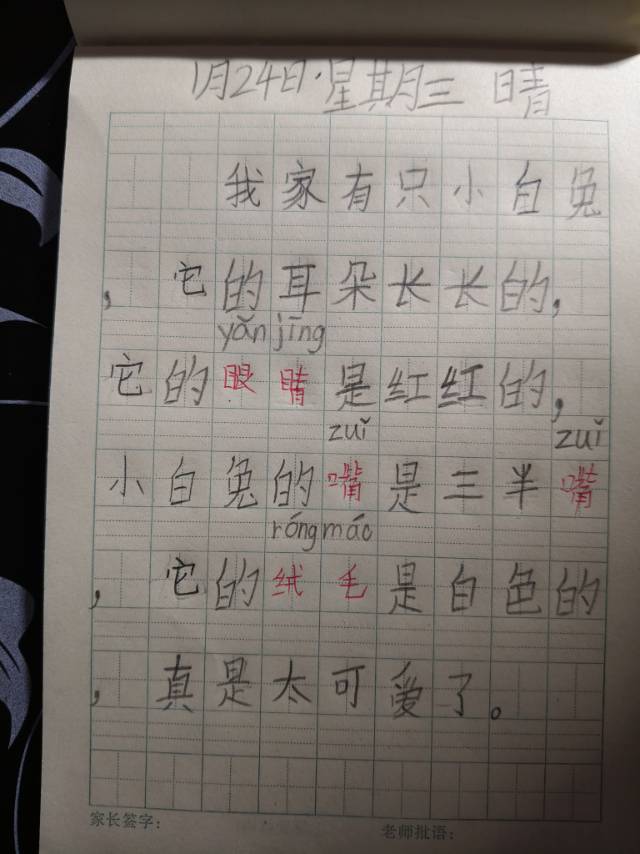 1月24日·星期三 晴
我家有只小白兔
，它的耳朵长长的，
yǎn jīng
它的眼睛是红红的，
zuǐ zuǐ
小白兔的嘴是三半嘴
róng máo
，它的绒毛是白色的
，真是太可爱了。
家长签字：
老师批语：